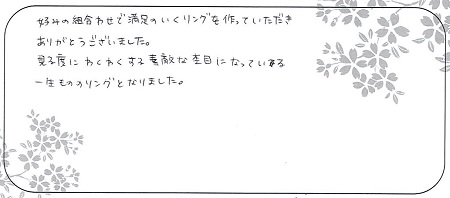 好みの組合わせで満足のいくリングを作っていただき
ありがとうございました。
見る度にわくわくする素敵な杢目になっている
一生もののリングとなりました。